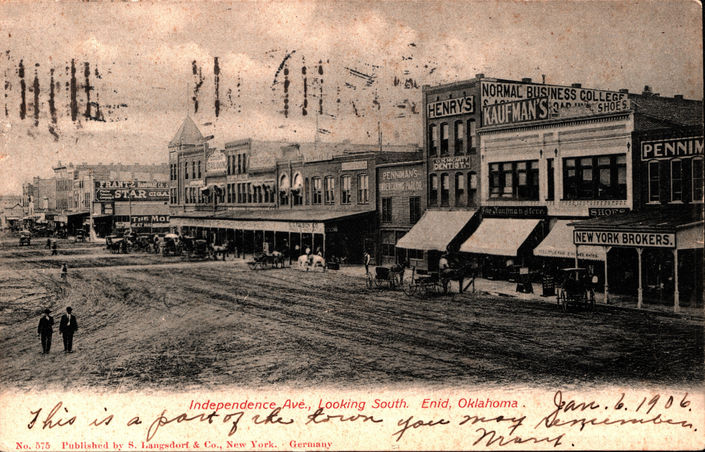 HENRY'S
NORMAL BUSINESS COLLEGE
KAUFMAN'S
SHOES
DENTIST
PENNIMAN'S
UNDERTAKING PARLOR
PENNIM
SHOES
NEW YORK BROKERS.
FRANTZ
STAR
THE MO
Independence Ave., Looking South. Enid, Oklahoma.
Jan. 6. 1906.
This is a part of the town you may remember.
Mary.
No. 575 Published by S. Langsdorf & Co., New York. - Germany